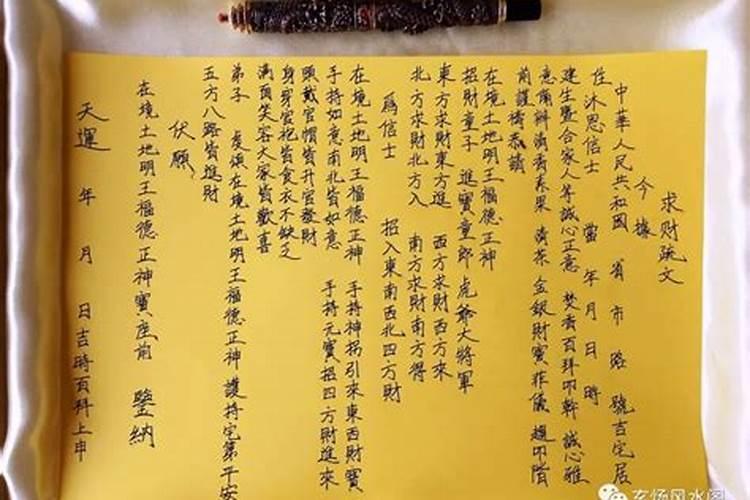 求财疏文
今據
中華人民共和國 省 市 路 號吉宅居
住 沐恩信士 當年 月 日 時
建生暨合家人等誠心正意 焚香百拜叩幹 誠心雅
意備辦清香素果 清茶 金銀財寶菲儀 趨叩階
前護禱恭請
在境土地明王福德正神
招財童子 進寶童郎 虎爺大將軍
東方求財東方進 西方求財西方來
北方求財北方入 南方求財南方得
爲信士 招入東南西北四方財
在境土地明王福德正神 手持神拐引來東西財寶
手持如意南北皆如意 手持元寶招四方財進來
頭戴官帽皆升官發財
身穿官袍皆食衣不缺乏
滿面笑容大家皆歡喜
弟子 虔頌在境土地明王福德正神 護持宅第平安
五方八路皆進財
伏願
在境土地明王福德正神寶座前 鑒納
天運 年 月 日吉時百拜上申
玄炀风水阁